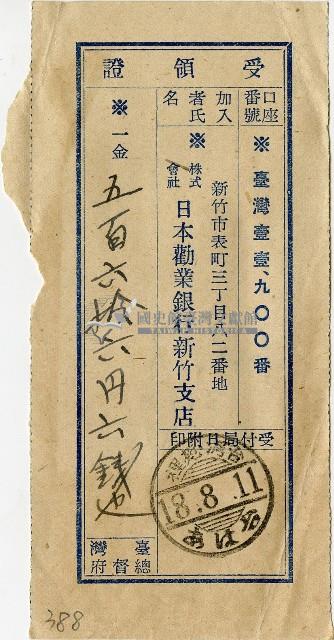 受領證
口座番號
※臺灣壹壹、九〇〇番
加入者氏名
新竹市表町三丁目八二番地
※株式會社日本勸業銀行新竹支店
受付局日附印
18.8.11
※一金
五百六拾六円六錢也
臺灣總督府
國史館臺灣文獻館
TAIWAN HISTORICA
388